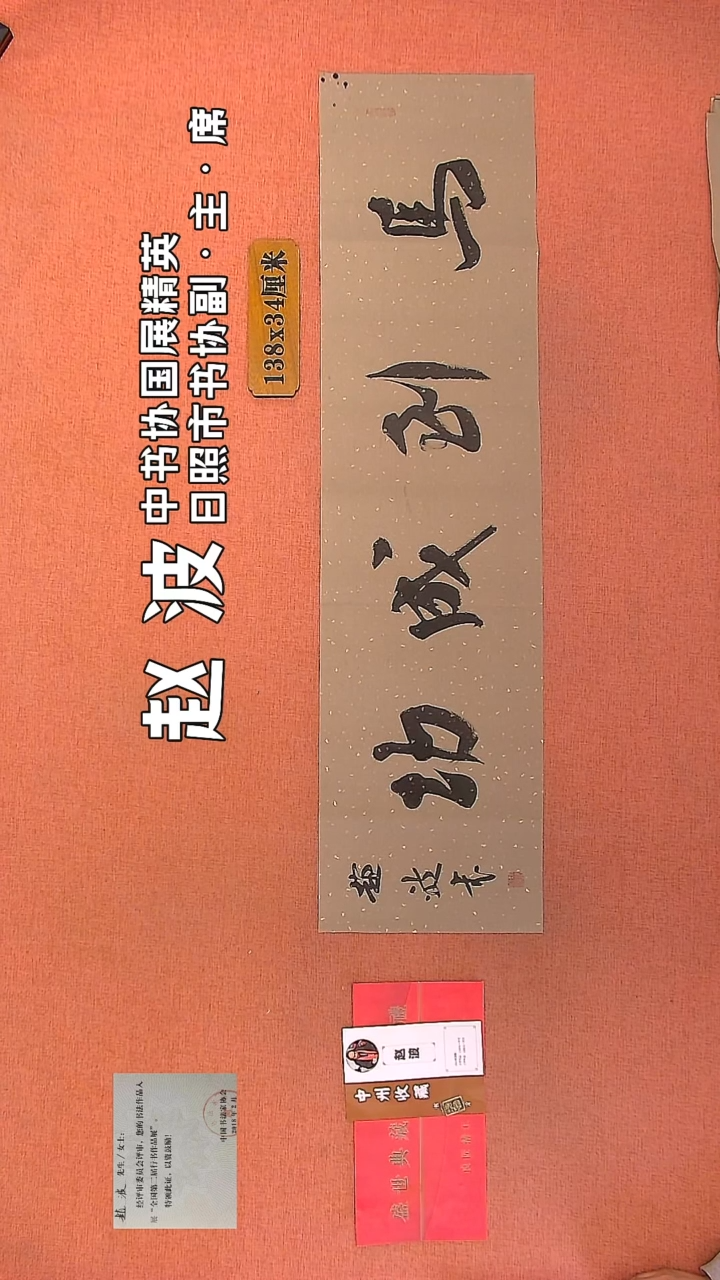 赵 波
中书协国展精英
日照市书协副·主·席
138x34厘米
馬到成功
趙波书
赵 波 先生/女士:
经评审委员会评审,您的书法作品入
展“全国第二届行书作品展”。
特颁此证,以资鼓励!
中国书法家协会
2018年2月
盛世典藏
禮
中州收藏
赵波